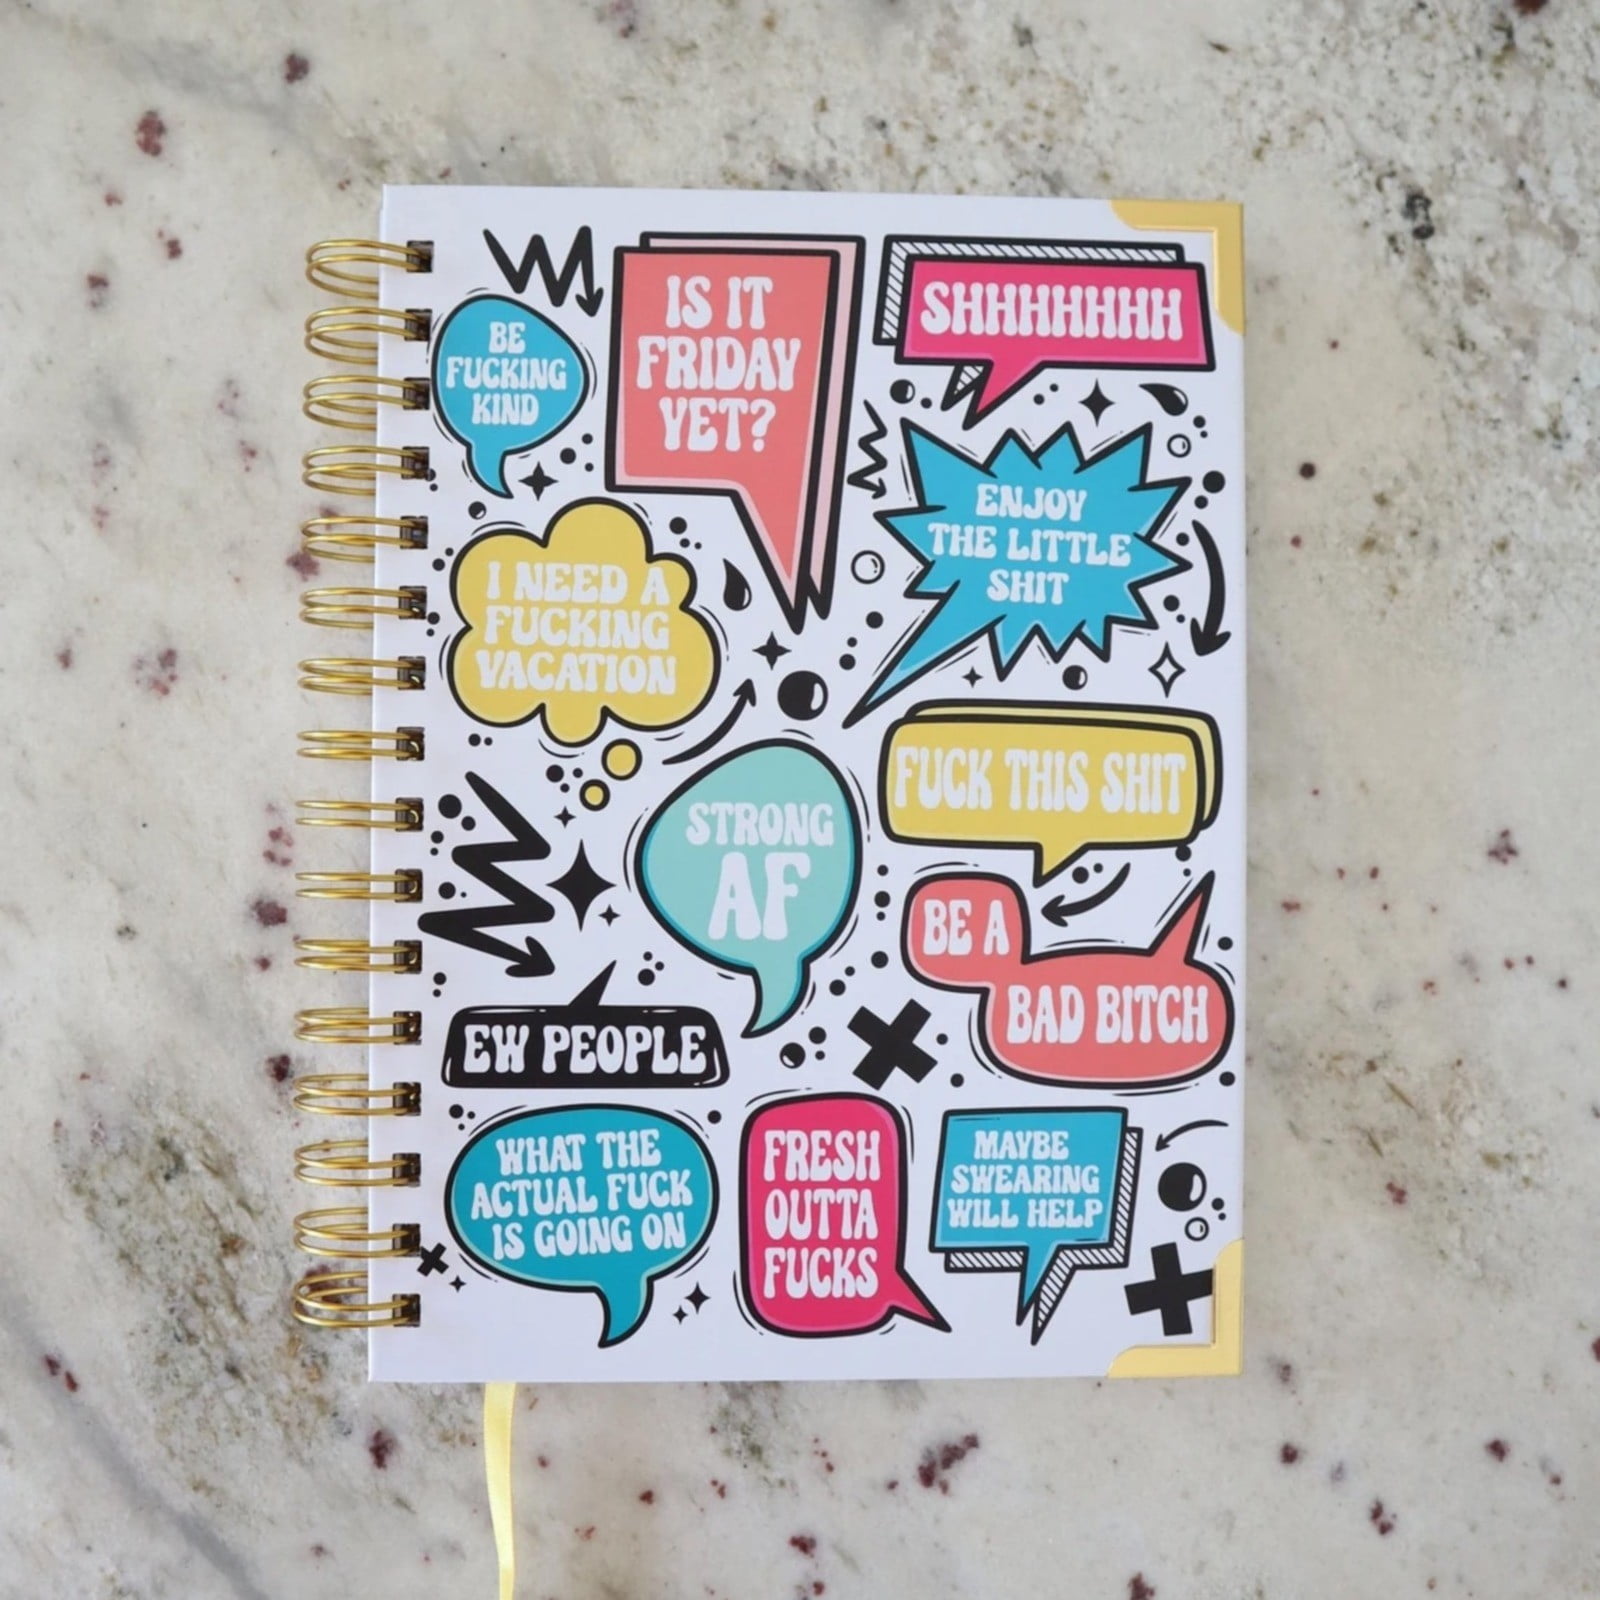 BE
FUCKING
KIND
IS IT
FRIDAY
YET?
SHHHHHHH
ENJOY
THE LITTLE
SHIT
I NEED A
FUCKING
VACATION
FUCK THIS SHIT
STRONG
AF
BE A
BAD BITCH
EW PEOPLE
WHAT THE
ACTUAL FUCK
IS GOING ON
FRESH
OUTTA
FUCKS
MAYBE
SWEARING
WILL HELP